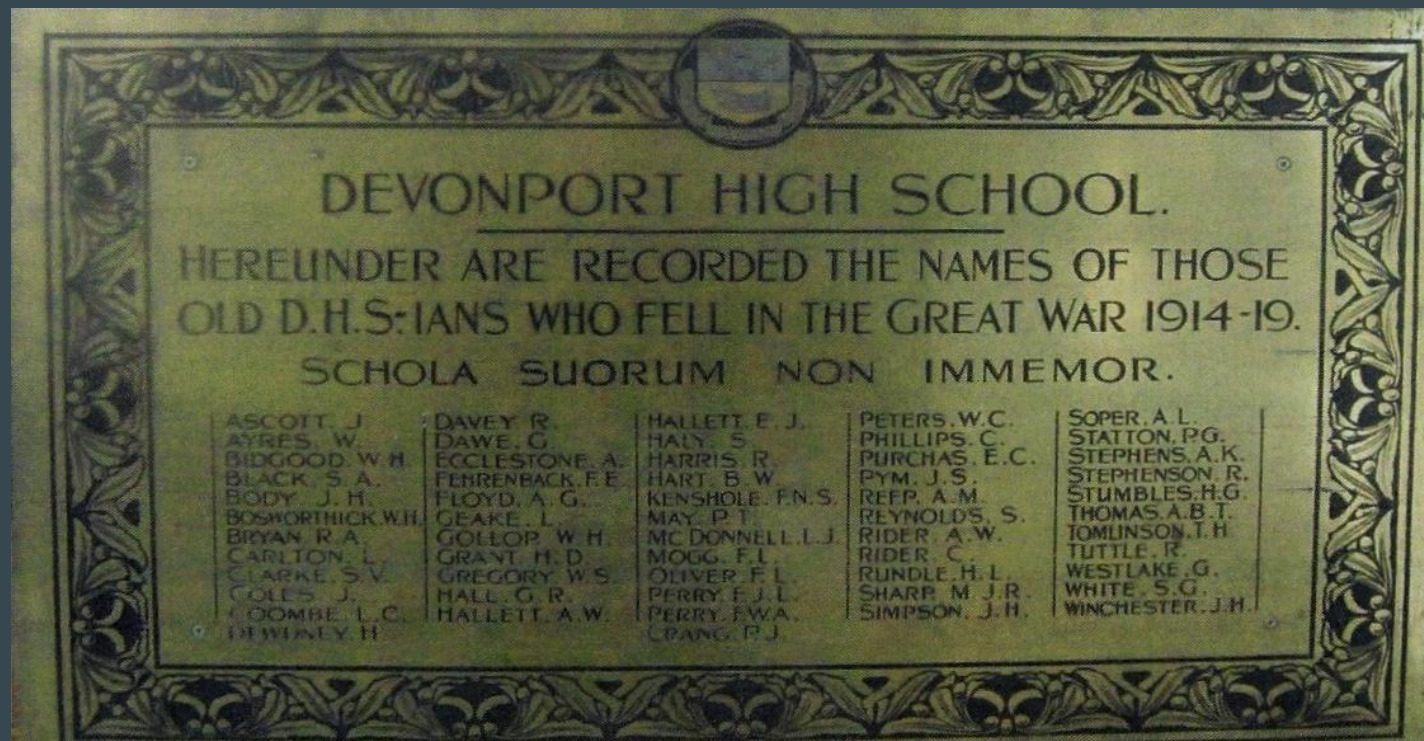 DEVONPORT HIGH SCHOOL.
HEREUNDER ARE RECORDED THE NAMES OF THOSE
OLD D.H.S-IANS WHO FELL IN THE GREAT WAR 1914-19.
SCHOLA SUORUM NON IMMEMOR.
ASCOTT. J
AYRES. W.
BIDGOOD. W.H.
BLACK. S.A.
BODY. J.H.
BOSWORTHICK. W.H.
BRYAN. R.A.
CARLTON. L.
CLARKE. S.V.
COLES. J.
COOMBE. L.C.
DEWDNEY. H
DAVEY. R.
DAWE. G.
ECCLESTONE. A.
FEHRENBACK. F.E.
FLOYD. A.G.
GEAKE. L.
GOLLOP. W.H.
GRANT. H.D.
GREGORY. W.S.
HALL. G.R.
HALLETT. A.W.
HALLETT. E.J.
HALY. S.
HARRIS. R.
HART. B.W.
KENSHOLE. F.N.S.
MAY. P.T.
MC DONNELL. L.J.
MOGG. F.L.
OLIVER. F.L.
PERRY. E.J.L.
PERRY. F.W.A.
CRANG. P.J.
PETERS. W.C.
PHILLIPS. C.
PURCHAS. E.C.
PYM. J.S.
REEP. A.M.
REYNOLDS. S.
RIDER. A.W.
RIDER. C.
RUNDLE. H.L.
SHARP. M.J.R.
SIMPSON. J.H.
SOPER. A.L.
STATTON. P.G.
STEPHENS. A.K.
STEPHENSON. R.
STUMBLES. H.G.
THOMAS. A.B.T.
TOMLINSON. T.H
TUTTLE. R.
WESTLAKE. G.
WHITE. S.G.
WINCHESTER. J.H.